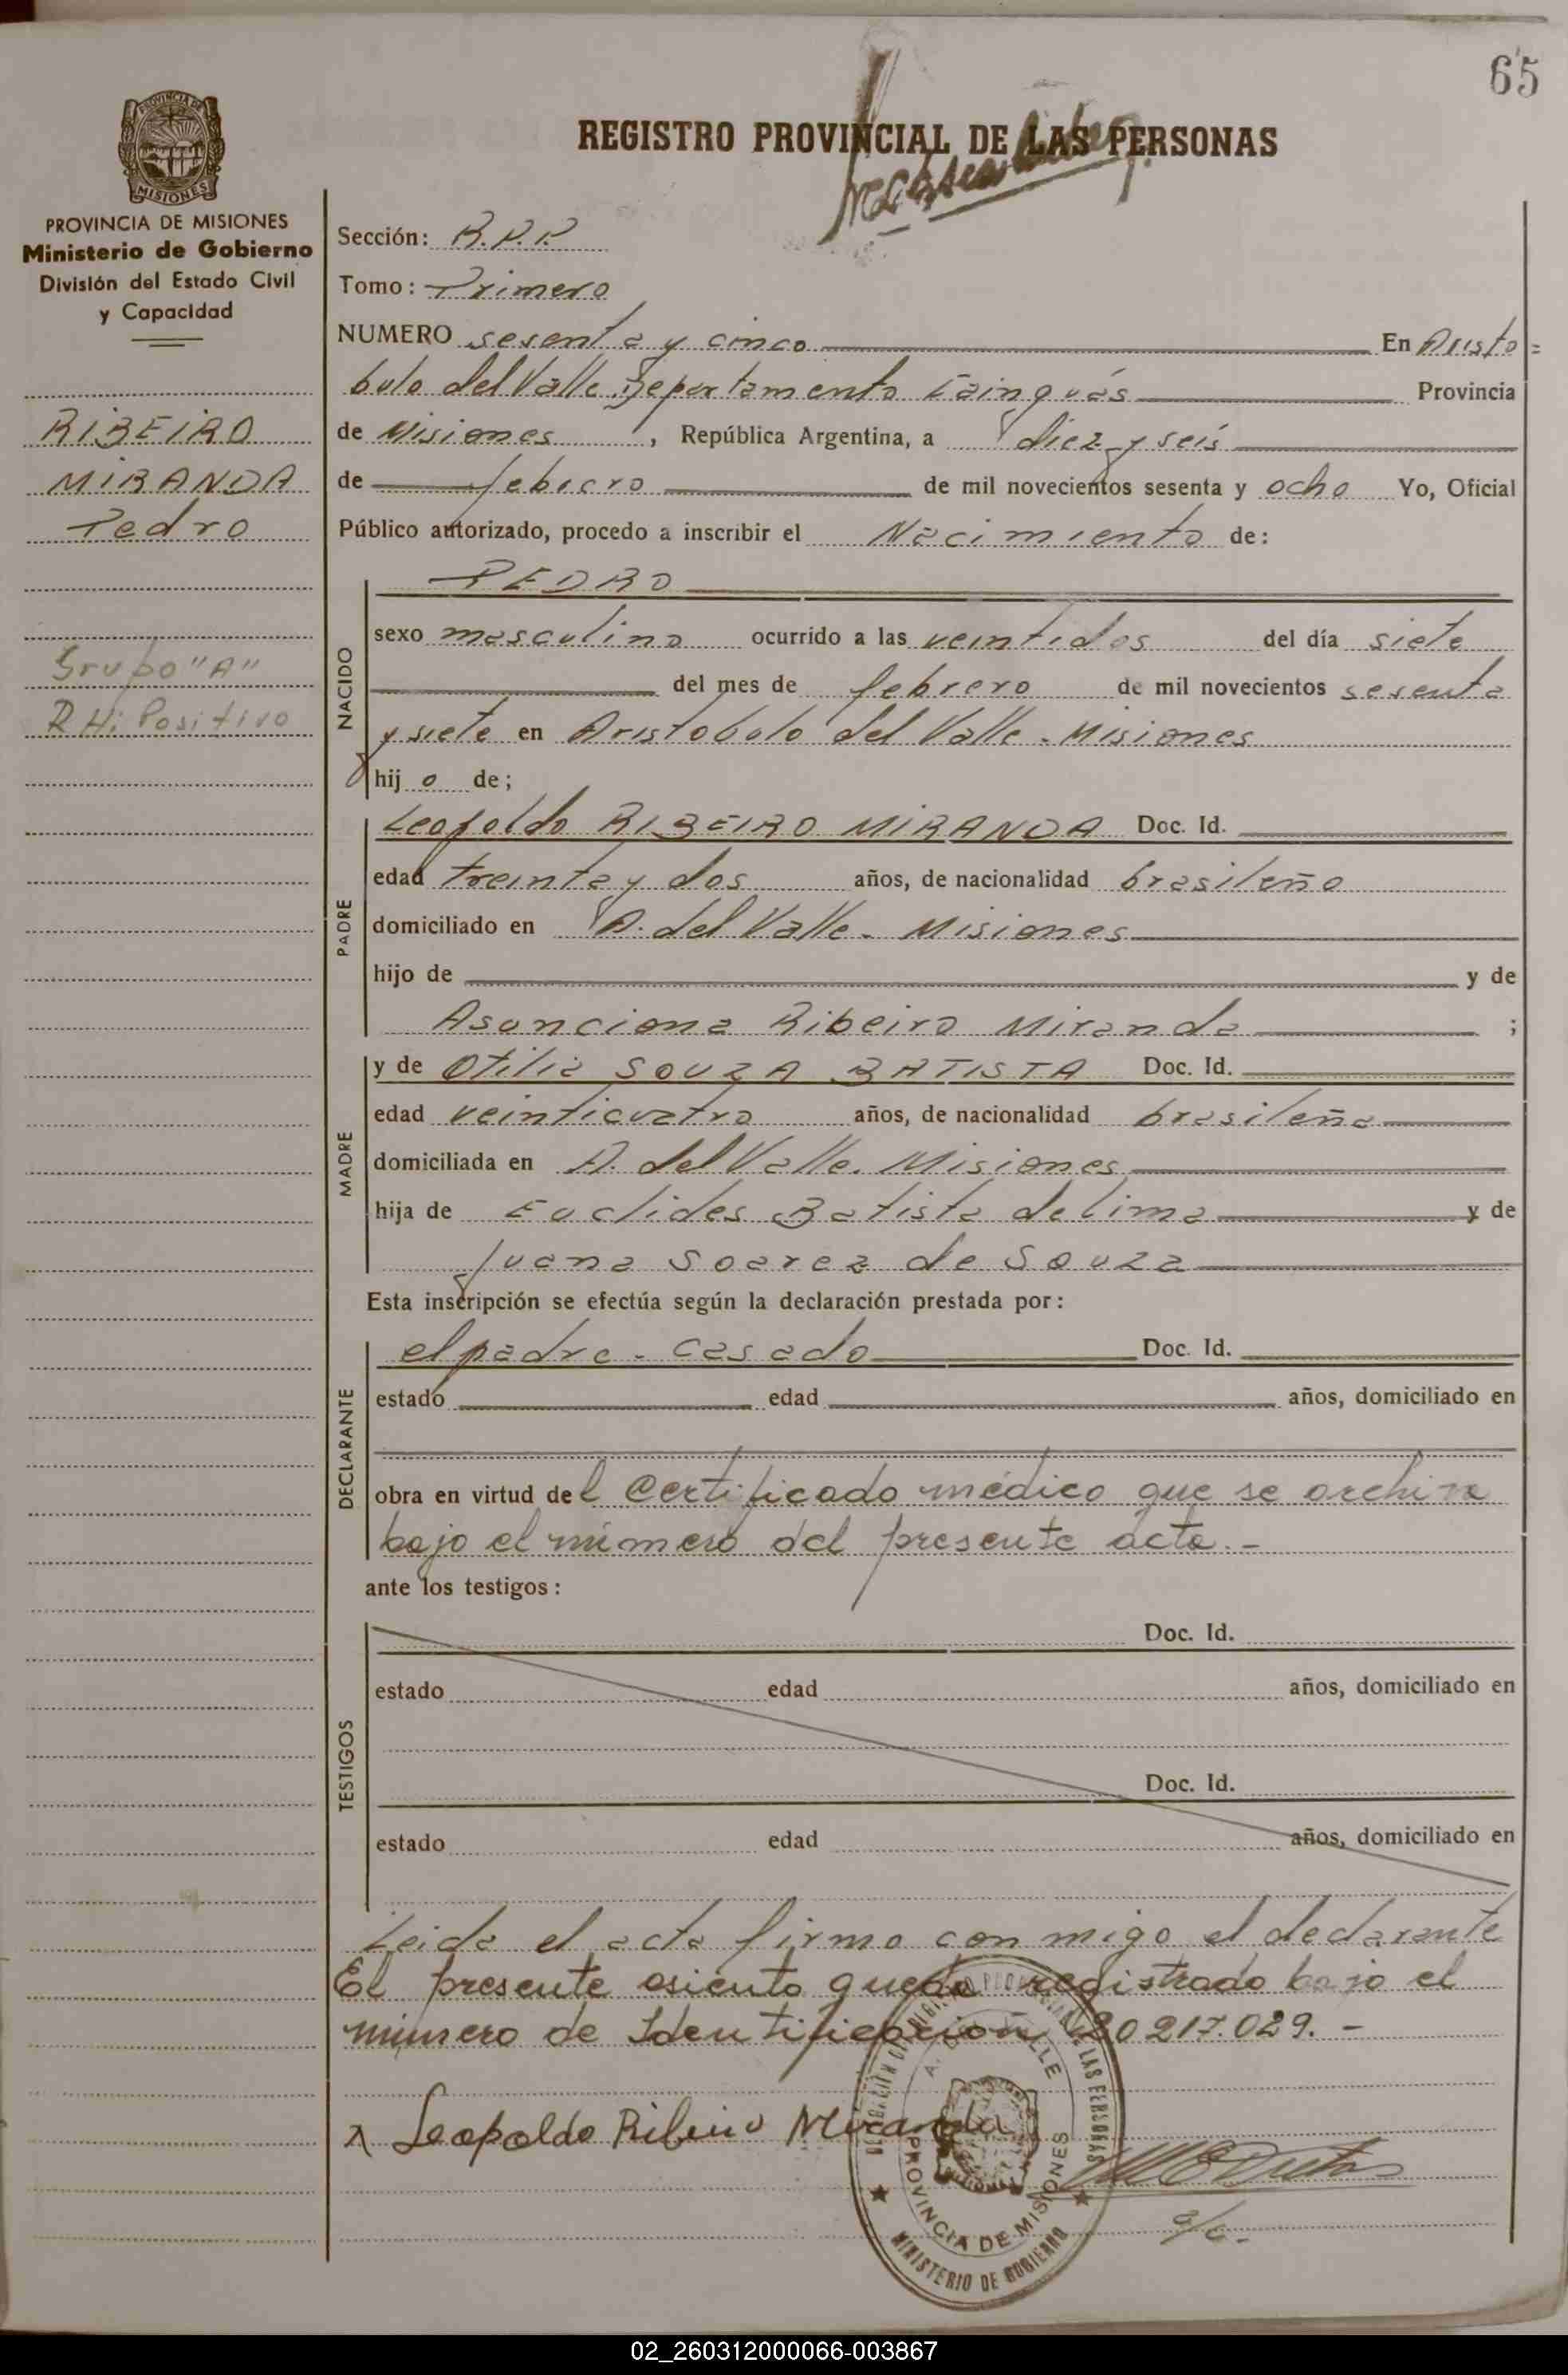 65
REGISTRO PROVINCIAL DE LAS PERSONAS
PROVINCIA DE MISIONES
PROVINCIA DE MISIONES
Ministerio de Gobierno
División del Estado Civil
y Capacidad
RIBEIRO
MIRANDA
Pedro
Grupo "A"
RHi Positivo
Sección: R.P.P.
Tomo: Primero
NUMERO sesenta y cinco En Aristo=
bulo del Valle Departamento Cainguás Provincia
de Misiones, República Argentina, a diez y seis
de febrero de mil novecientos sesenta y ocho Yo, Oficial
Público autorizado, procedo a inscribir el Nacimiento de:
PEDRO
NACIDO
sexo masculino ocurrido a las veintidos del día siete
del mes de febrero de mil novecientos sesenta
y siete en Aristobulo del Valle - Misiones
hijo de;
PADRE
Leopoldo RIBEIRO MIRANDA Doc. Id.
edad treinta y dos años, de nacionalidad brasileño
domiciliado en A. del Valle - Misiones
hijo de y de
Asunciona Ribeiro Miranda ;
MADRE
y de Otilia SOUZA BATISTA Doc. Id.
edad veinticuatro años, de nacionalidad brasileña
domiciliada en A. del Valle. Misiones
hija de Euclides Batista de lima y de
Juana Soarez de Souza
Esta inscripción se efectúa según la declaración prestada por:
DECLARANTE
el padre - casado Doc. Id.
estado edad años, domiciliado en
obra en virtud del Certificado médico que se archiva
bajo el número del presente acta.-
ante los testigos:
TESTIGOS
Doc. Id.
estado edad años, domiciliado en
Doc. Id.
estado edad años, domiciliado en
Leida el acta firmo con migo el declarante
El presente asiento queda registrado bajo el
número de Identificación 20 217.029. -
x Leopoldo Ribeiro Miranda
A. DEL VALLE
PROVINCIA DE MISIONES
MINISTERIO DE GOBIERNO
02_260312000066-003867